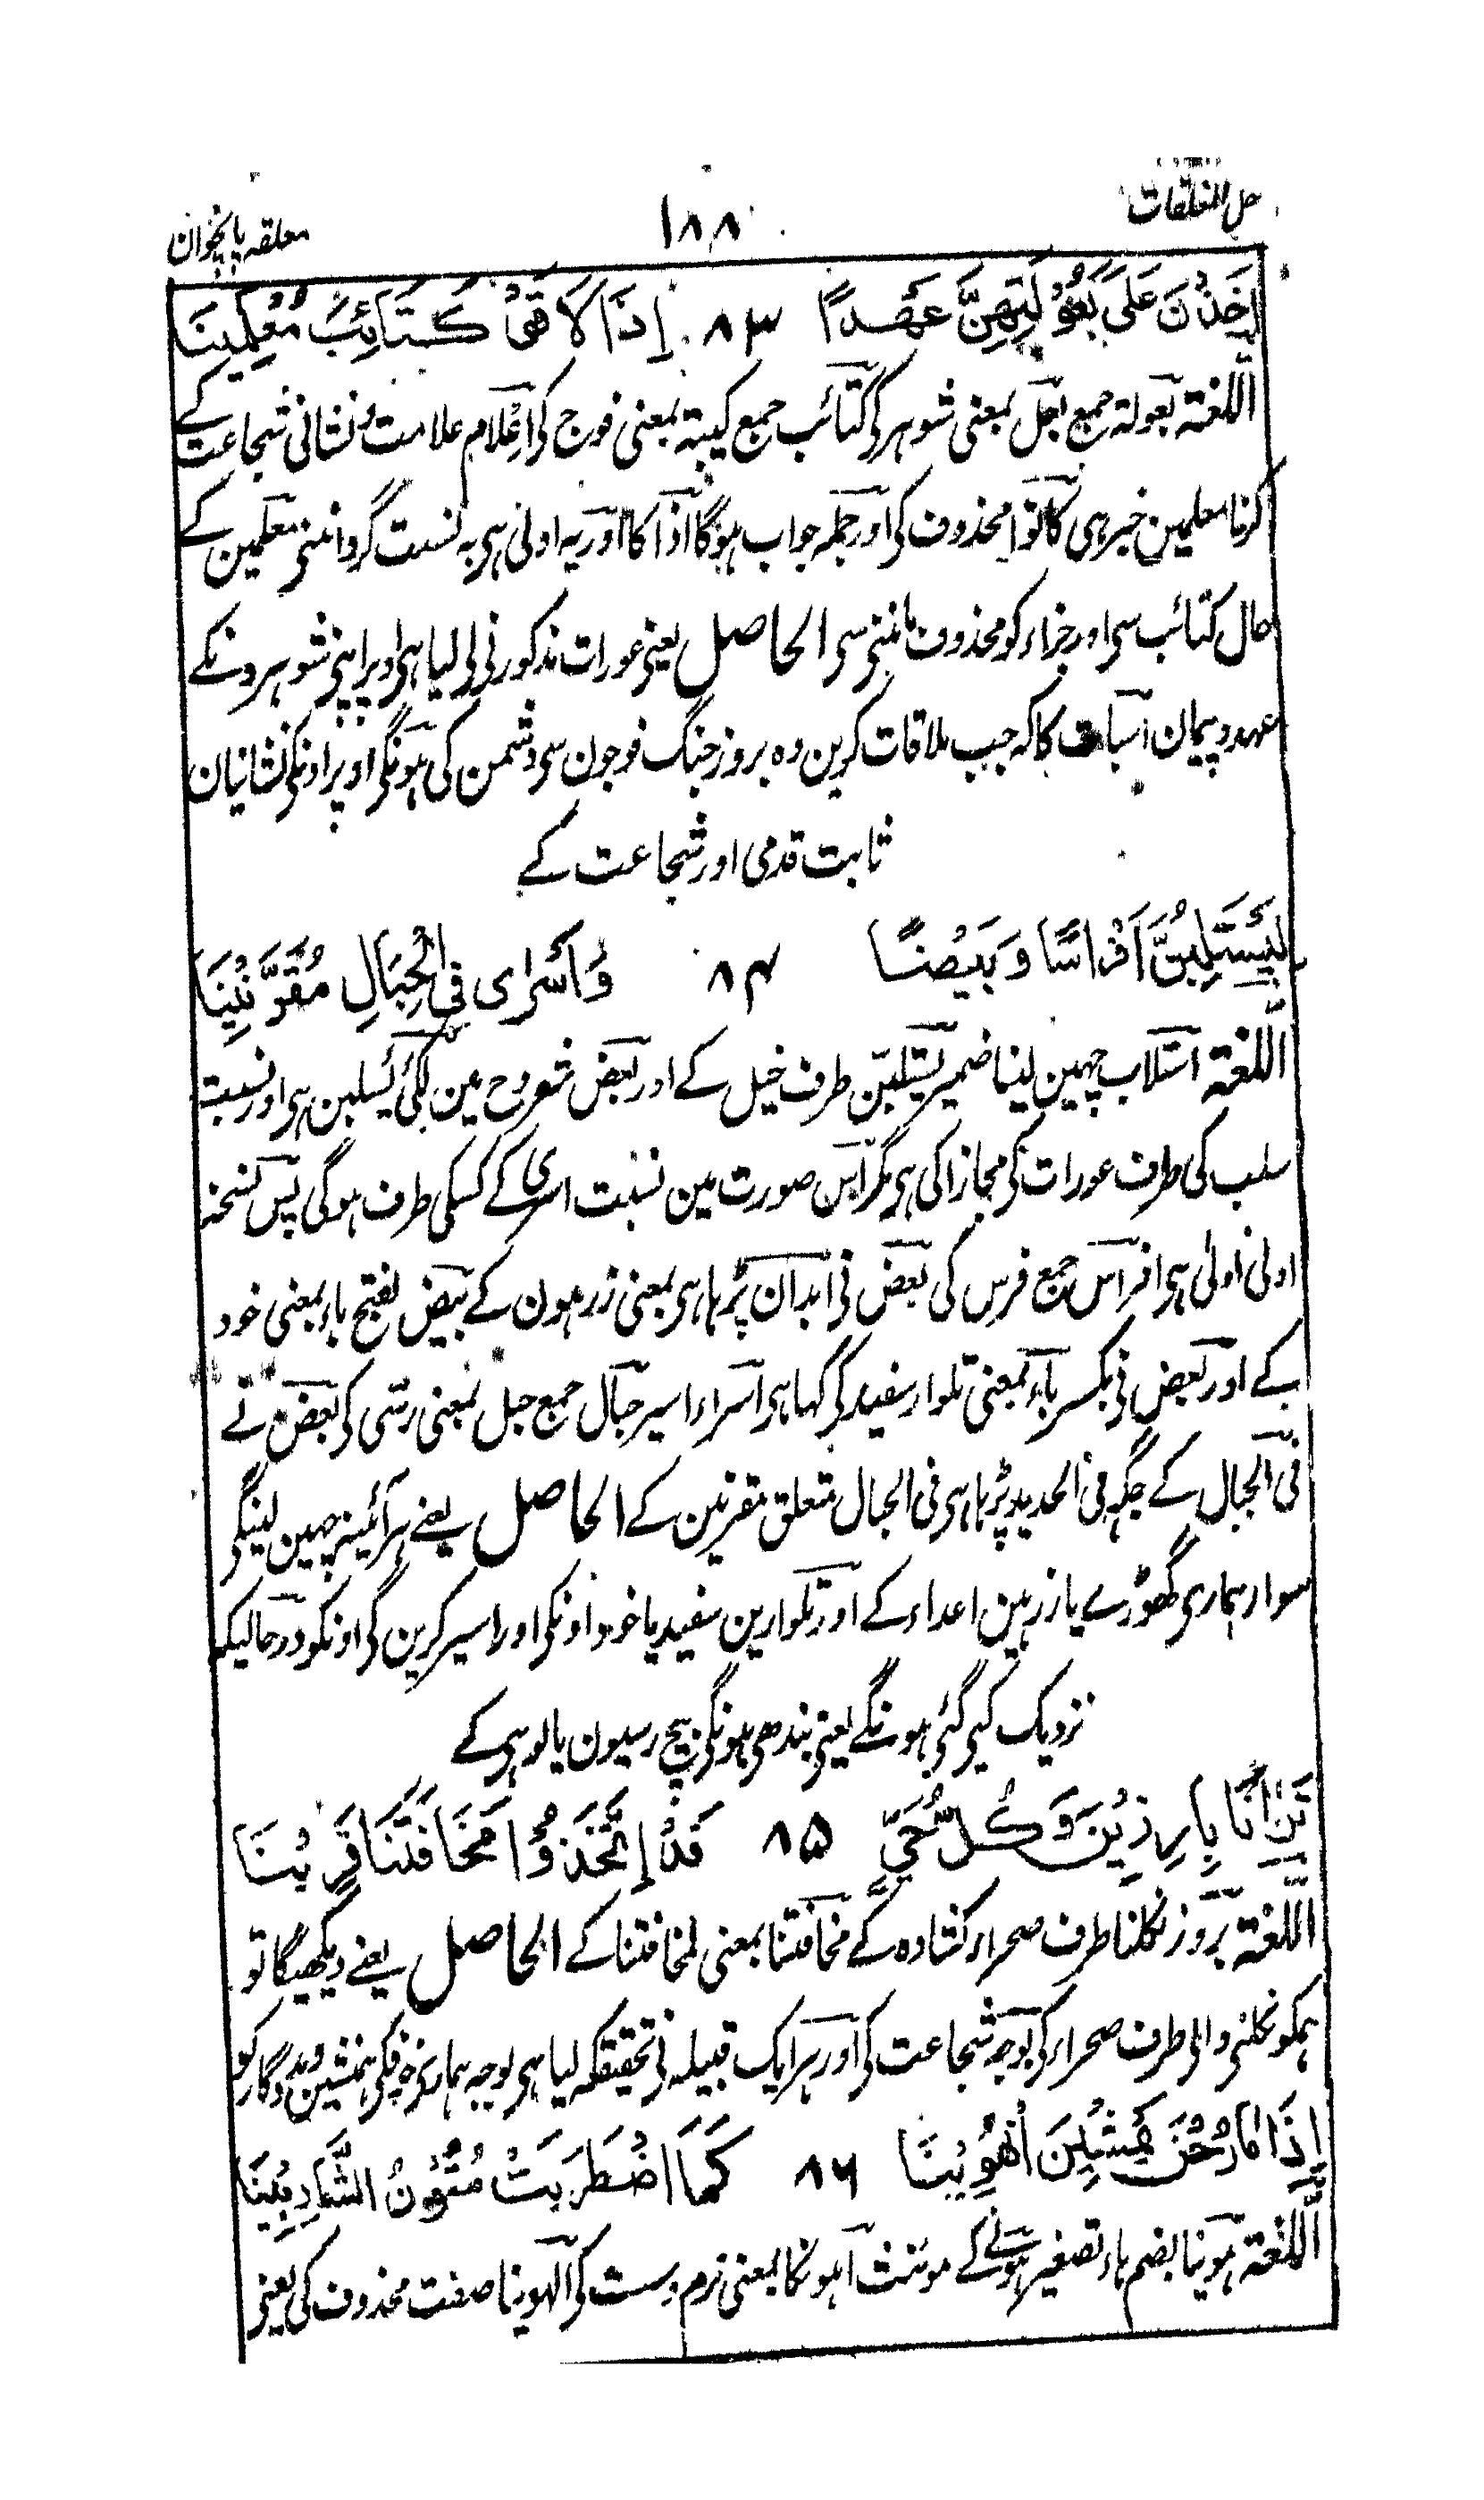 حل المغلقات
۱۸۸
معلقہ پانچوان
اَخَذْنَ عَلَیٰ بُعُوْلَتِهِنَّ عَهْدًا ۸۳ اِذَا لَاقَوْا كَتَائِبَ مُعْلِمِیْنَا
اللغة بعولہ جمع بعل بمعنی شوہر کی کتائب جمع کتیبہ بمعنی فوج کی اِعْلام علامت و نشانی شجاعت کے
کرنا معلمین خبر ہی کانوا محذوف کی اور جملہ جواب ہوگا اذا کا اور یہ اولی ہی بہ نسبت گرداننی معلمین کے
حال کتائب سی اور جزاء کو محذوف ماننی سی الحاصل یعنی عورات مذکور نی لی لیا ہی اوپر اپنی شوہرونکے
عہد و پیمان اسبات کا کہ جب ملاقات کرین وہ بروز جنگ فوجون سی دشمن کی ہونگی اوپر اونکی نشانیان
ثابت قدمی اور شجاعت کے
لَیَسْتَلِبُنَّ اَفْرَاسًا وَبَیْضًا ۸۴ وَاَسْرٰی فِی الْحِبَالِ مُقَرَّنِیْنَا
اللغة استلاب چہین لینا ضمیر یستلبن طرف خیل کے اور بعض شروح مین لکی یسلبن ہی اور نسبت
سلب کی طرف عورات کی مجازا کی ہی مگر اس صورت مین نسبت اسری کے کسکی طرف ہوگی پس نسخہ
اولی اولی ہی افراس جمع فرس کی بعض نی ابدان پڑہا ہی بمعنی زرہون کے بیض بفتح باء بمعنی خود
کے اور بعض نی بکسر باء بمعنی تلوار سفید کی کہا ہی اسراء اسیر حبال جمع حبل بمعنی رسی کی بعض نے
فی الحبال کے جگہ فی الحدید پڑہا ہی فی الحبال متعلق مقرنین کے الحاصل یعنے ہرآئینہ چہین لینگی
سوار ہماری گھوڑے یا زرہین اعداء کے اور تلوارین سفید یا خود اونکی اور اسیر کرین گی اونکو درحالیکہ
نزدیک کیی گئی ہونگے یعنی بندھی ہونگی بیچ رسیون یا لوہی کے
تَرَانَا بَارِزِیْنَ وَكُلُّ حَیٍّ ۸۵ قَدْ اِتَّخَذُوْا مَخَافَتَنَا قَرِیْنَا
اللغة بروز نکلنا طرف صحراء کشادہ کے مخافتنا بمعنی لمخافتنا کے الحاصل یعنے دیکھیگا تو
ہمکو نکلنی والی طرف صحراء کی بوجہ شجاعت کی اور ہر ایک قبیلہ نی تحقیقکہ لیا ہی بوجہ ہماری خوفکی ہمنشین و مددگار کو
اِذَا مَا رُحْنَ یَمْشِیْنَ الْهُوَیْنَا ۸۶ كَمَا اضْطَرَبَتْ مُتُوْنُ الشَّارِبِیْنَا
اللغة ہوینا بضم ہاء تصغیر ہونے کے مونث اہون کا بمعنی نرم و سست کی الہوینا صفت محذوف کی یعنی